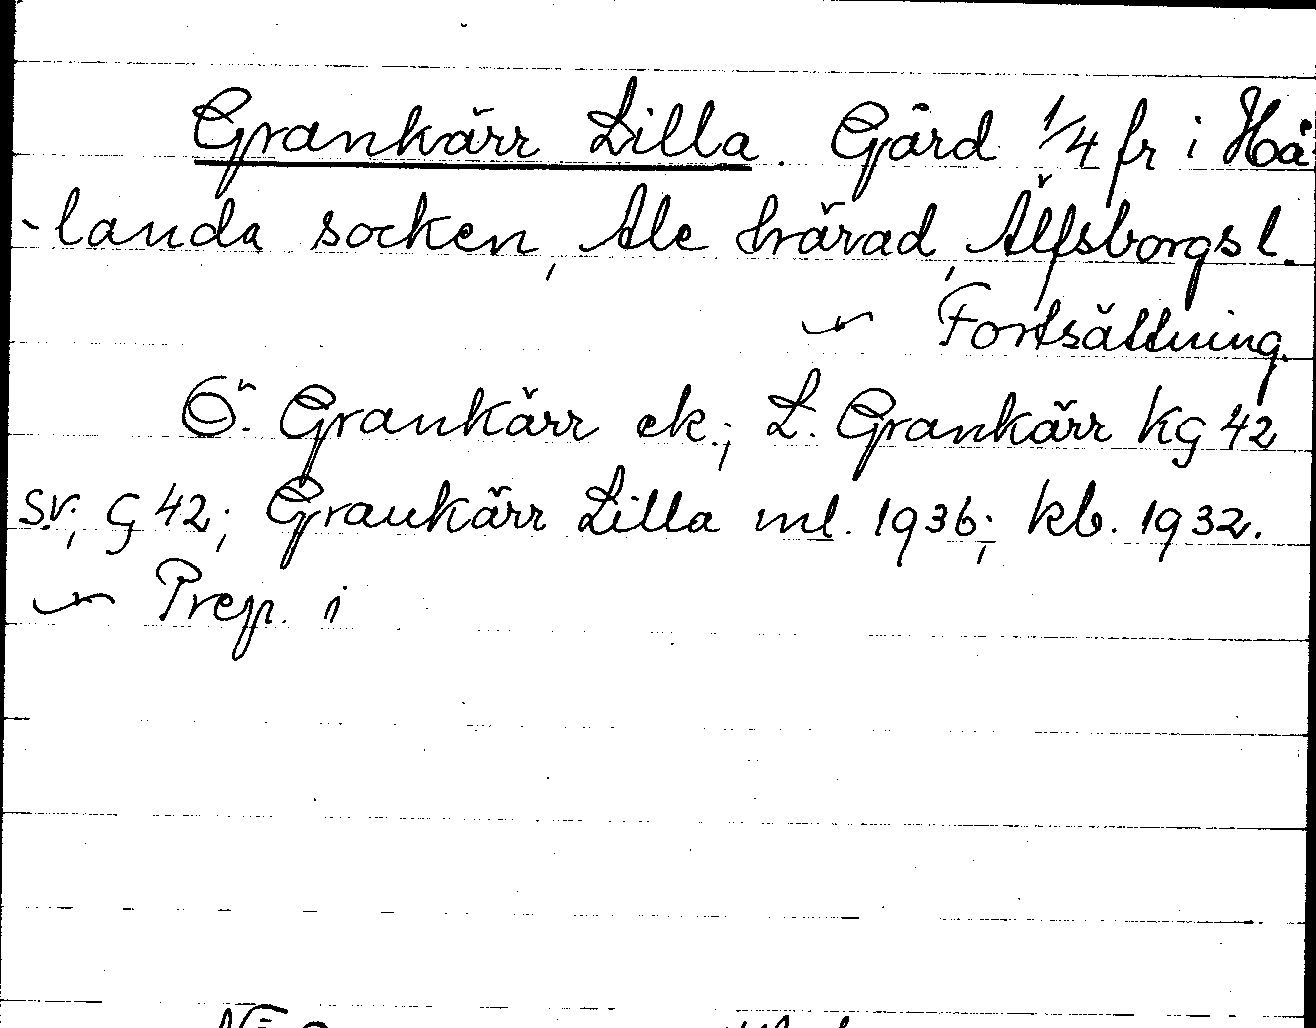 Grankärr Lilla. Gård 1/4 fr i Hå
-landa socken, Ale härad, Älfsborgs l.
~ Fortsättning.
Ö. Grankärr ek.; L. Grankärr KG 42
sv.; G 42; Grankärr Lilla ml. 1936; kb. 1932.
~ Prep. i